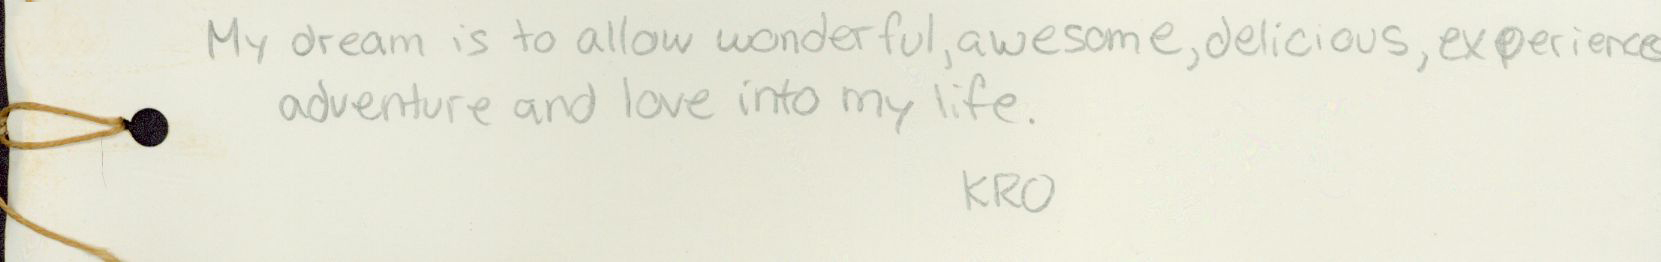 My dream is to allow wonderful, awesome, delicious, experience
adventure and love into my life.
KRO